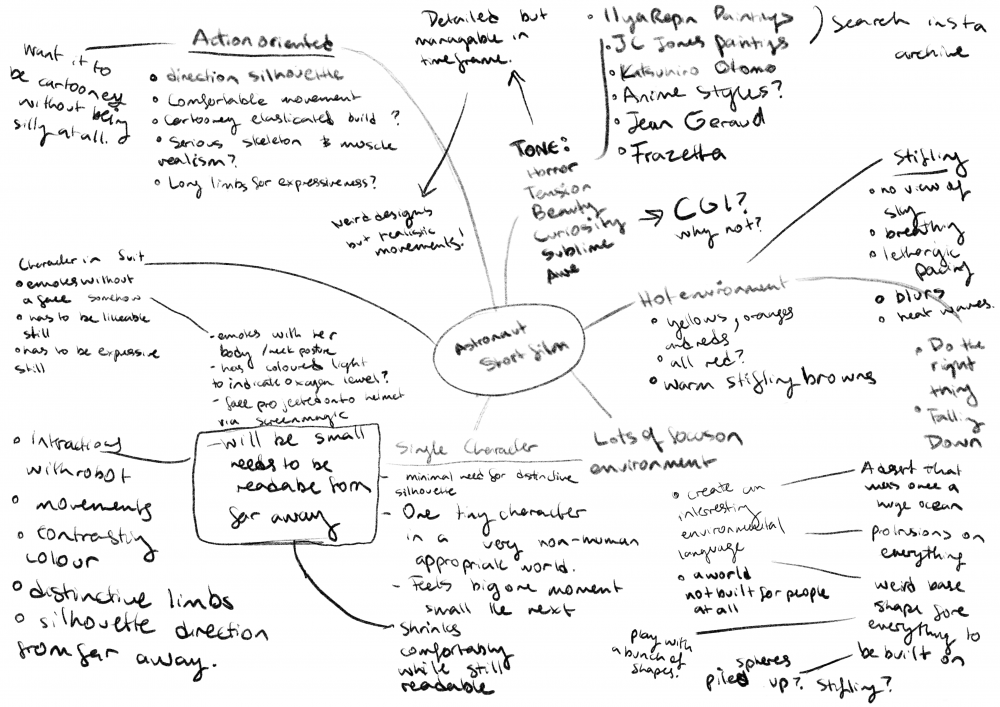 Want it to
be cartooney
without being
silly at all.
Action oriented
• direction silhouette
• Comfortable movement
• Cartooney elasticated build?
• Serious skeleton & muscle
realism?
• Long limbs for expressiveness?
Detailed but
managable in
timeframe.
• Ilya Repin Paintings
• JC Jones paintigs
• Katsuhiro Otomo
• Anime Styles?
• Jean Geraud
• Frazetta
Search insta
archive
TONE:
Horror
Tension
Beauty
Curiosity
Sublime
Awe
CGI?
why not?
weird designs
but realisic
movements!
Stifling
• no view of
sky
• breathing
• lethergic
pacing
• blurs
• heat waves.
• Do the
right
thing
• Falling
Down
Hot environment
• yellows, oranges
and reds
• all red?
• warm stifling browns
Character in Suit
• emotes without
a face somehow
• has to be likeable
still
• has to be expressive
still
- emotes with her
body / neck posture
- has coloured light
to indicate oxygen level?
- face projected onto helmet
via screen magic
Astronaut
Short film
• Intractions
with robot
• movements
• contrasting
colour
• distinctive limbs
• silhouette direction
from far away.
- will be small
needs to be
readable from
far away
- Shrinks
comfortably
while still
readable
Single Character
- minimal need for distinctive
silhouette
- One tiny character
in a very non-human
appropriate world.
- Feels big one moment
small the next
Lots of focus on
environment
• create an
interesting
environmental
language
• a world
not built for people
at all
A desert that
was once a
huge ocean
protrusions on
everything
weird base
shape for
everything to
be built on
play with
a bunch of
shapes?
spheres
piled up? Stifling?